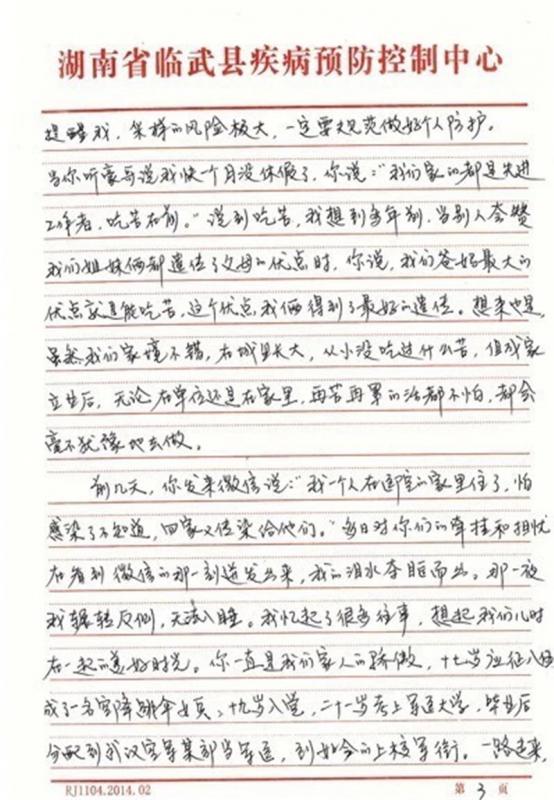 湖南省临武县疾病预防控制中心
提醒我，采样的风险极大，一定要规范做好个人防护。
当你听豪哥说我快一个月没休假了，你说：“我们家的都是先进
工作者，吃苦在前。”说到吃苦，我想到多年前，当别人夸赞
我们姐妹俩都遗传了父母的优点时，你说，我们爸妈最大的
优点就是能吃苦，这个优点，我俩得到了最好的遗传。想来也是，
虽然我们家境不错，在城里长大，从小没吃过什么苦，但成家
立业后，无论在单位还是在家里，再苦再累的活都不怕，都会
毫不犹豫地去做。
前几天，你发来微信说：“我一个人在部室的家里住了，怕
感染了不知道，回家又传染给他们。”每日对你们的牵挂和担忧
在看到微信的那一刻迸发出来，我的泪水夺眶而出。那一夜
我辗转反侧，无法入睡。我忆起了很多往事，想起我们儿时
在一起的美好时光。你一直是我们家人的骄傲，十七岁应征入伍
成了一名空降跳伞女兵，十九岁入党，二十一岁考上军医大学，毕业后
分配到武汉空军某部当军医，到如今的上校军衔。一路走来，
RJ1104.2014.02
第 3 页